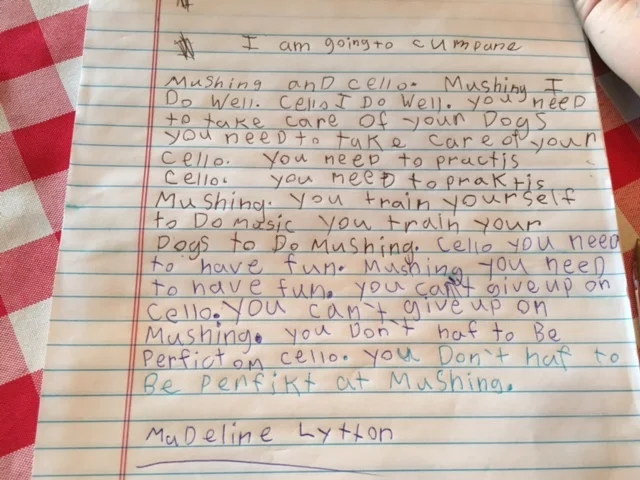 I am going to cumpare
Mushing anD cello. Mushing I
Do Well. Cello I Do Well. you neeD
to take care of your Dogs
you neeD to take care of your
cello. you neeD to practis
cello. you neeD to praktis
Mushing. you train yourself
to Do mosic you train your
Dogs to Do Mushing. Cello you neeD
to have fun. Mushing you neeD
to have fun. you can't give up on
cello. you can't give up on
Mushing. you Don't haf to Be
Perfict on cello. you Don't haf to
Be Perfikt at Mushing.
MaDeline Lytton